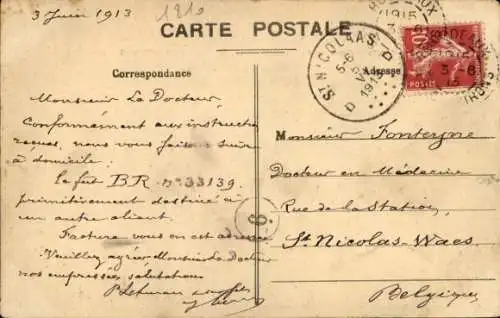 3 Juin 1913
1210
CARTE POSTALE
Correspondance
Adresse
Monsieur Le Docteur,
Conformément aux instructions
reçues, nous vous faisons suivre
à domicile.
le fût BR n° 33139
primitivement destiné à
un autre client.
Facture vous en est adressée
Veuillez agréer Monsieur le Docteur
nos empressées salutations
Monsieur Fontergne
Docteur en Médecine
Rue de la Station
St Nicolas-Waes
Belgique
ST NICOLAAS
5-6
1913
D D
6
10
POSTES
BORDEAUX